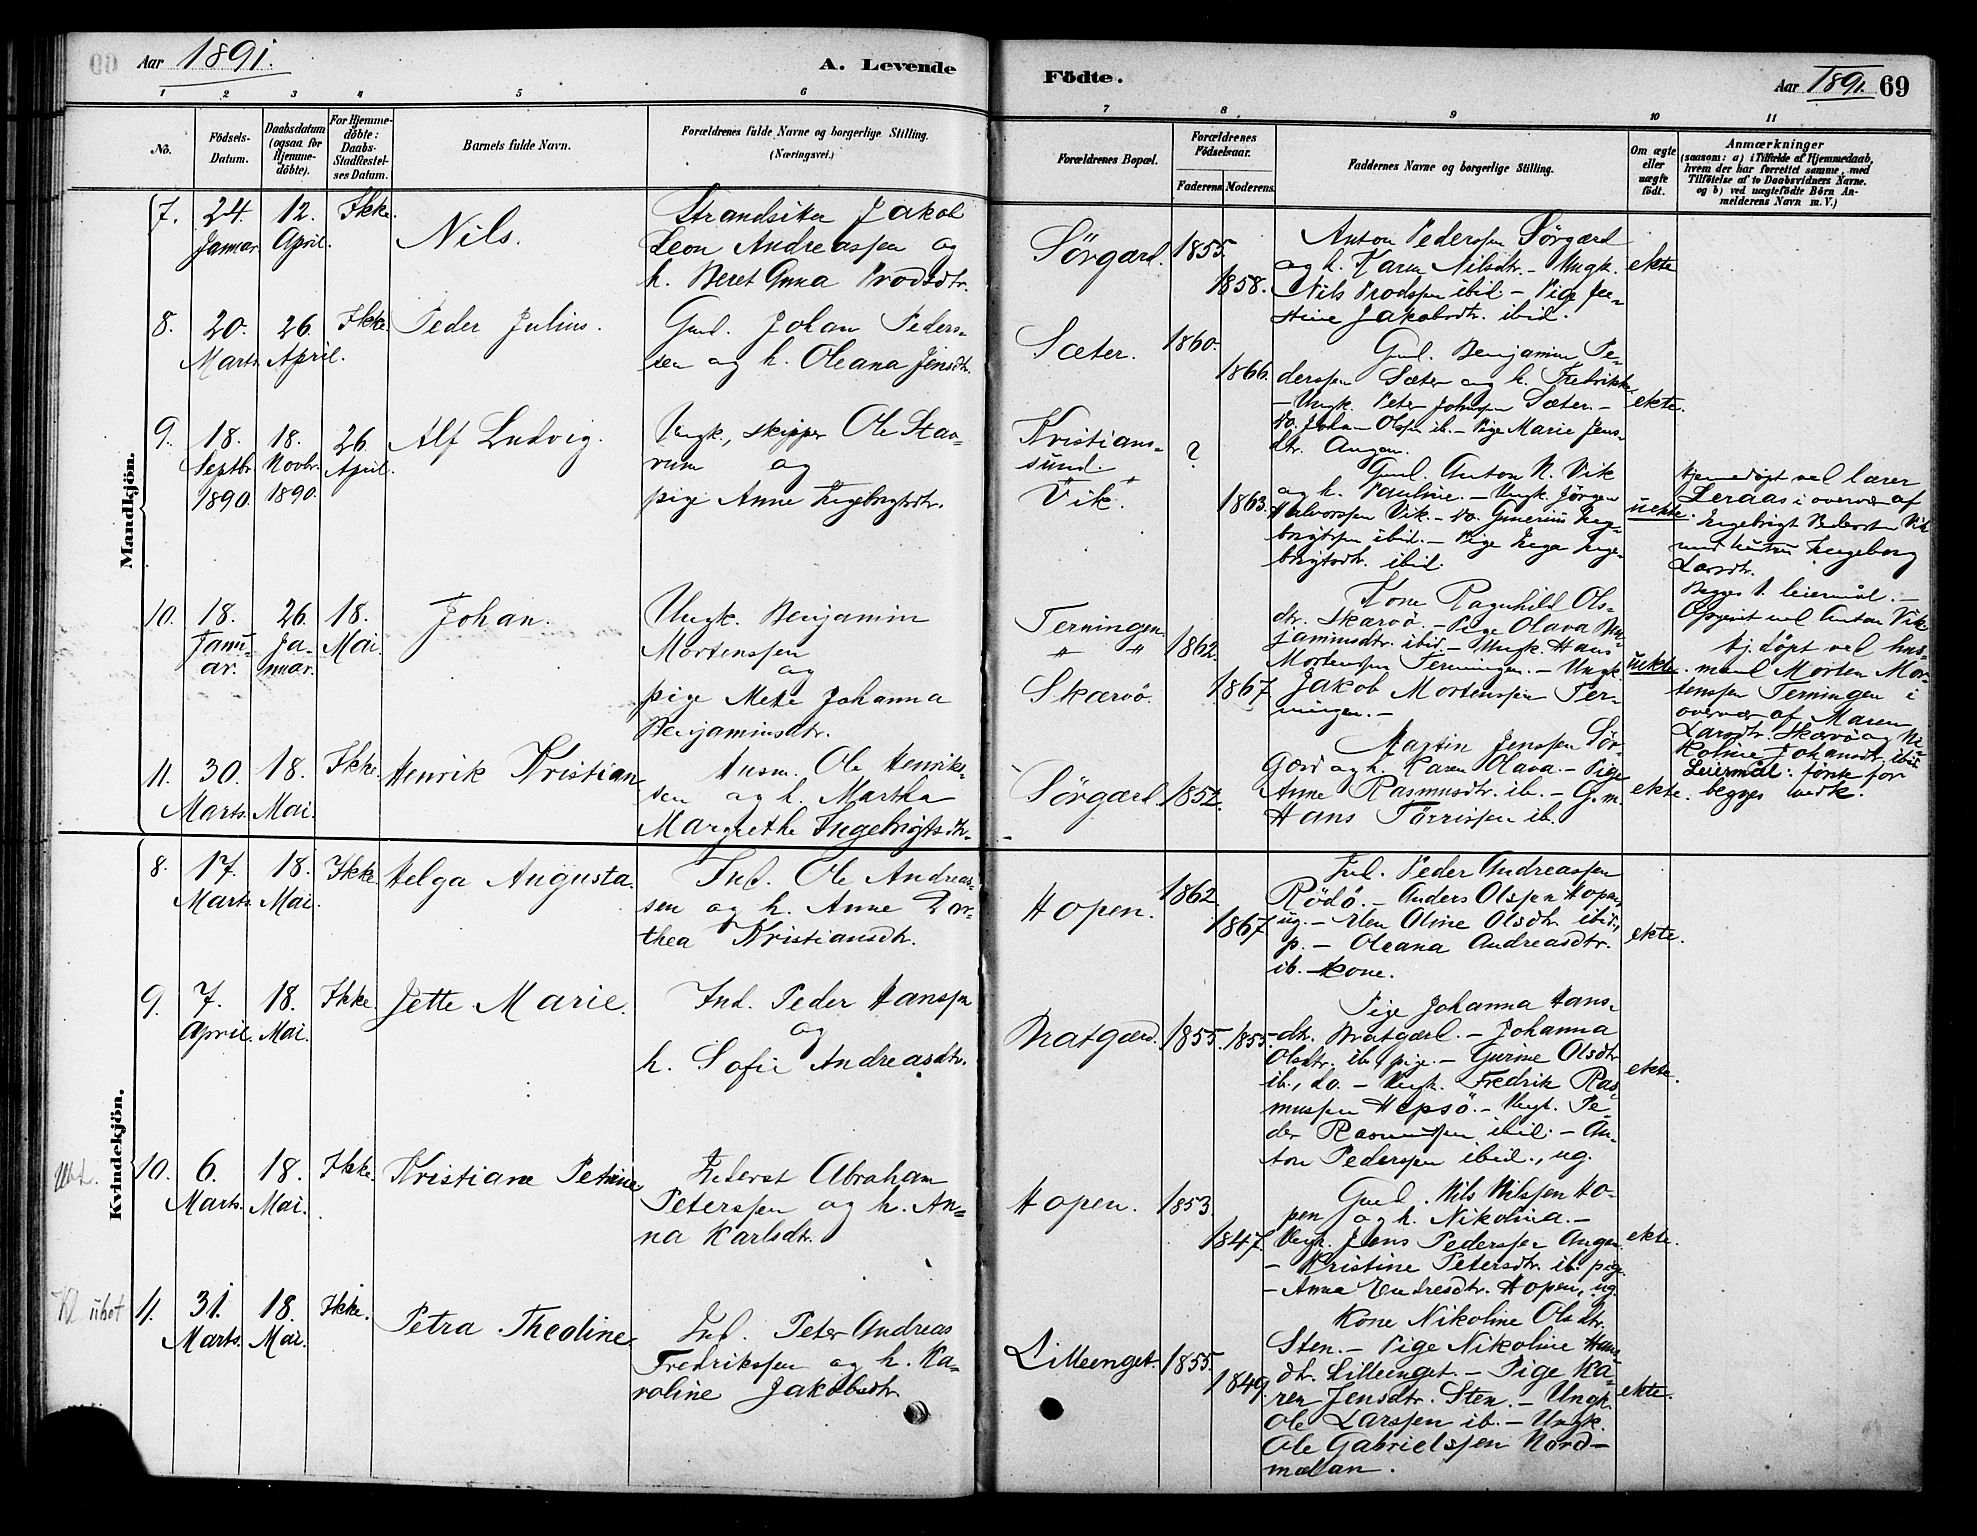 Aar 1891.
A. Levende
Födte.
Aar 1891. 69
1 2 3 4 5 6 7 8 9 10 11
No.
Födsels-
Datum.
Daabsdatum
(ogsaa for
Hjemme-
döbte).
For Hjemme-
döbte:
Daabs-
Stadfæstel-
ses Datum.
Barnets fulde Navn.
Forældrenes fulde Navne og borgerlige Stilling.
(Næringsvei.)
Forældrenes Bopæl.
Forældrenes
Födselsaar.
Faderens. Moderens.
Faddernes Navne og borgerlige Stilling.
Om ægte
eller
uægte
födt.
Anmærkninger
(saasom: a) i Tilfælde af Hjemmedaab,
hvem der har forrettet samme, med
Tilföielse af to Daabsvidners Navne.
og b) ved uægtefödte Börn An-
melderens Navn m. V.)
Mandkjön.
7.
24
Januar.
12.
April.
Ikke.
Nils.
Strandsitter Jakob
Leon Andreassen og
h. Beret Anna Brodsdtr.
Sörgærd.
1855.
1858.
Anton Pederssen Sörgærd
og h. Karen Nilsdtr. - Ungk.
Nils Brodssen ibid. - Pige Jee-
stine Jakobsdtr. ibid.
ekte
8.
20.
Marts.
26
April.
Ikke
Peder Julius.
Gmd. Johan Peders-
sen og h. Oleana Jensdtr.
Sæter.
1860.
1866.
Gmd. Benjamin Pe-
derssen Sæter og h. Fredrikke
- Ungk. Peter Johnssen Sæter. -
do. Johan Olssen ib. - Pige Marie Jens-
dtr. Angen.
ekte.
9.
18.
Septbr.
1890.
18.
Novbr.
1890.
26
April.
Alf Ludvig.
Ungk., skipper Ole Stav-
rum og
pige Anne Ingebrigtsdtr.
Kristians-
sund.
Vik.
?
1863.
Gmd. Anton N. Vik
og h. Pauline. - Ungk. Jörgen
Halvorssen Vik. - do. Gunerius Inge-
brigtssen ibid. - Pige Inga Inge-
brigtsdtr. ibid.
uekte.
Hjemmedöpt ved lærer
Leraas i overvær af
Ingebrigt Pederssen Vik
med hustru Ingeborg
Larsdtr.
Begges 1. leiermål. -
Opgivet ved Anton Vik
10.
18.
Janu-
ar.
26.
Ja-
nuar.
18.
Mai.
Johan.
Ungk. Benjamin
Mortenssen
og
pige Mete Johanna
Benjaminsdtr.
Terningen.
" "
Skarvö.
1862.
1867.
Kone Ragnhild Ols-
dtr. Skarvö. - Pige Olava Ben-
jaminsdtr. ibid. - Ungk. Hans
Mortenssen Terningen. - Ungk.
Jakob Mortenssen Ter-
ningen. -
uekte.
Hj. döpt ved hus-
mand Morten Mor-
tenssen Terningen i
overvær af Maren
Larsdtr. Skarvö og Ni-
koline Johansdtr. ibid
Leiermål: förste for
begges vedk.
11.
30.
Marts.
18.
Mai.
Ikke.
Henrik Kristian
Husm. Ole Henriks-
sen og h. Martha
Margrethe Ingebrigtsdtr.
Sörgærd
1852.
Martin Jenssen Sör-
gærd og h. Karen Olava. - Pige
Anne Rasmusdtr. ib. - G. m.
Hans Törrissen ib.
ekte.
Kvindekjön.
8.
17.
Marts.
18.
Mai.
Ikke.
Helga Augusta.
Ind. Ole Andreas-
sen og h. Anne Dor-
thea Kristiansdtr.
Hopen.
1862.
1867
Ind. Peder Andreassen
Rödö. - Anders Olssen Hopen,
ug. - Elen Oline Olsdtr. ibid.,
p. - Oleana Andreasdtr.
ib. kone.
ekte.
9.
7.
April.
18.
Mai.
Ikke
Jette Marie.
Ind. Peder Hanssen
og
h. Sofie Andreasdtr.
Bratgærd.
1855.
1855.
Pige Johanna Hans-
dtr. Bratgærd. - Johanna
Olsdtr. ib., pige. - Gurine Olsdtr.
ib., do. - Ungk. Fredrik Ras-
mussen Hepsö. - Ungk. Pe-
der Rasmussen ibid. - An-
ton Pederssen ibid., ug.
ekte.
10.
6.
Marts.
18.
Mai.
Ikke.
Kristiane Petrine
Inderst Abraham
Peterssen og h. An-
na Karlsdtr.
Hopen.
1853
1847.
Gmd. Nils Nilssen Ho-
pen og h. Nikolina. -
Ungk. Jens Pederssen Angen.
- Kristine Petersdtr. ib. pige
- Anna Endresdtr. Hopen, ug.
ekte.
11.
31.
Marts.
18.
Mai.
Ikke.
Petra Theoline
Ind. Peter Andreas
Fredrikssen og h. Ka-
roline Jakobsdtr.
Lilleenget.
1855.
1849.
Kone Nikoline Olsdtr.
Sten. - Pige Nikoline Hans-
dtr. Lilleenget. - Pige Ka-
ren Jensdtr. Sten. - Ungk.
Ole Larssen ib. - Ungk.
Ole Gabrielssen Nord-
mælan.
ekte.